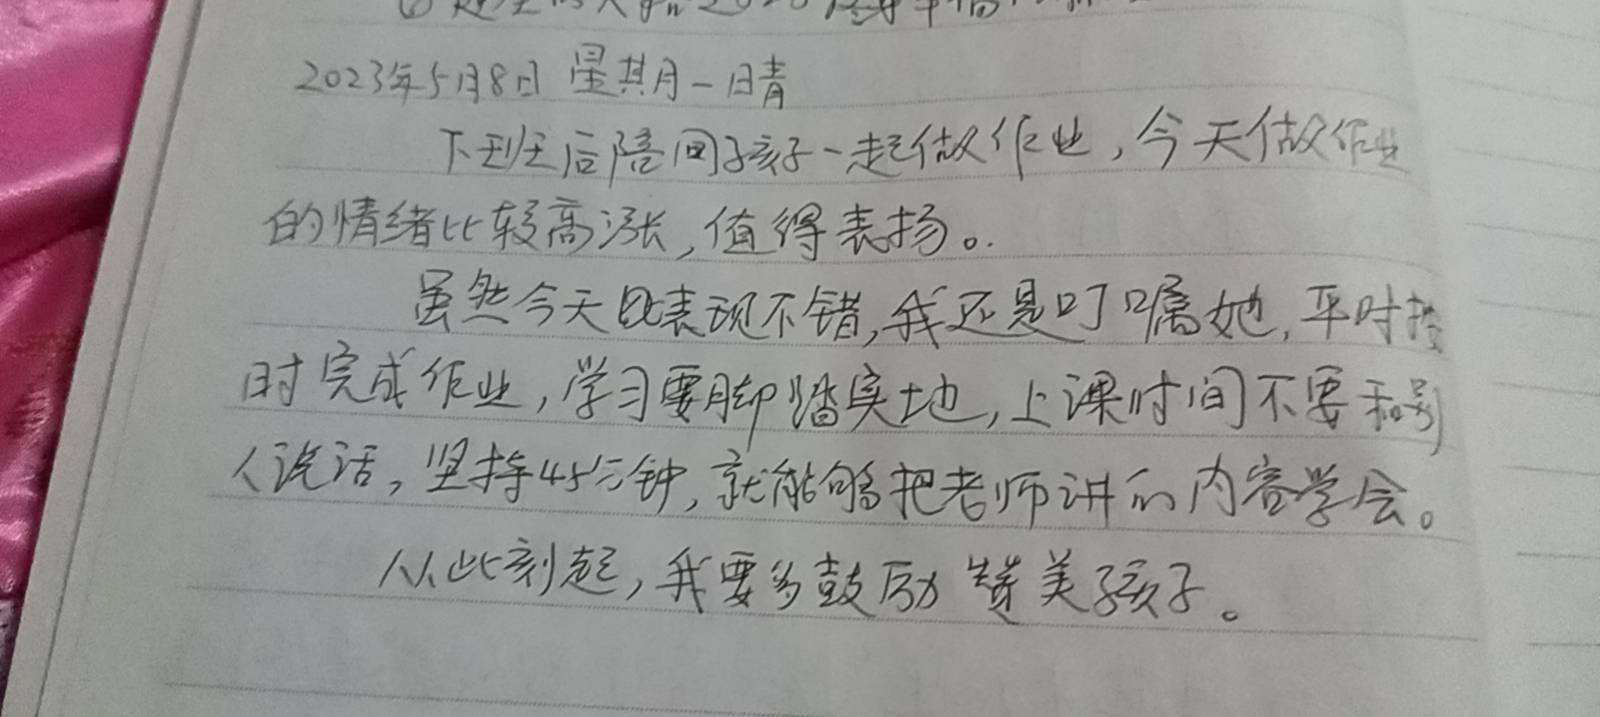 2023年5月8日 星其月一 晴
下班后陪同孩子一起做作业，今天做作业
的情绪比较高涨，值得表扬。
虽然今天既表现不错，我还是叮嘱她，平时按
时完成作业，学习要脚踏实地，上课时间不要和别
人说话，坚持45分钟，就能够把老师讲的内容学会。
从此刻起，我要多鼓励赞美孩子。